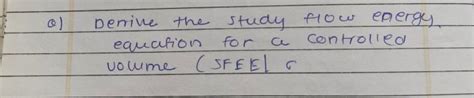 Q) Derive the study flow energy
equation for a controlled
volume (SFEE)